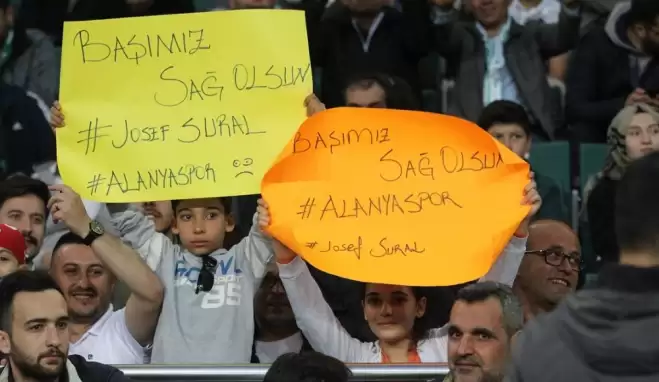 BAŞIMIZ
SAĞ OLSUN
#JOSEF SURAL
#ALANYASPOR
BAŞIMIZ
SAĞ OLSUN
#ALANYASPOR
#JOSEF SURAL
85